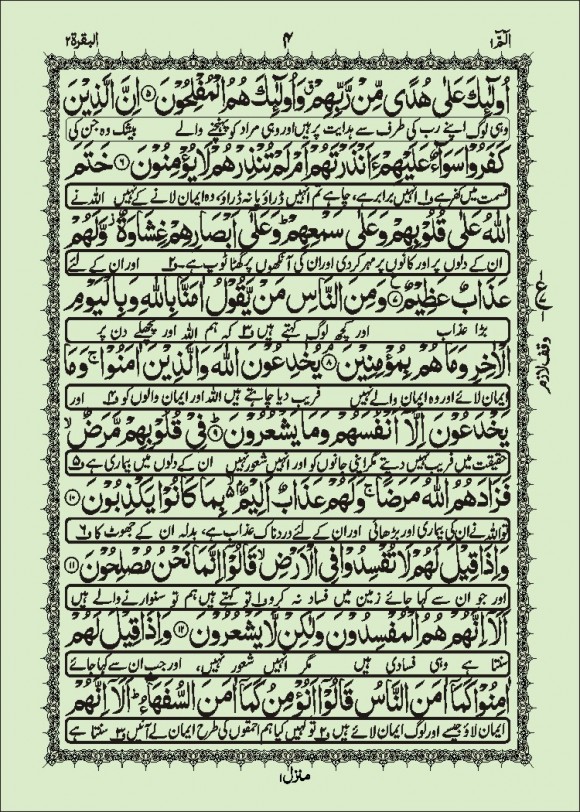 الٓمّٓ ۱ ۴ البقرة ۲
اُولٰٓئِكَ عَلٰی هُدًی مِّنْ رَّبِّهِمْ ۗ وَاُولٰٓئِكَ هُمُ الْمُفْلِحُوْنَ ﴿۵﴾ اِنَّ الَّذِیْنَ
وہی لوگ اپنے رب کی طرف سے ہدایت پر ہیں اور وہی مراد کو پہنچنے والے بیشک وہ جن کی
كَفَرُوْا سَوَآءٌ عَلَیْهِمْ ءَاَنْذَرْتَهُمْ اَمْ لَمْ تُنْذِرْهُمْ لَا یُؤْمِنُوْنَ ﴿۶﴾ خَتَمَ
قسمت میں کفر ہے و۱ انہیں برابر ہے، چاہے تم انہیں ڈراؤ یا نہ ڈراؤ، وہ ایمان لانے کے نہیں اللہ نے
اللّٰهُ عَلٰی قُلُوْبِهِمْ وَعَلٰی سَمْعِهِمْ ؕ وَعَلٰۤی اَبْصَارِهِمْ غِشَاوَةٌ ؗ وَّلَهُمْ
ان کے دلوں پر اور کانوں پر مہر کر دی اور ان کی آنکھوں پر گھٹا ٹوپ ہے و۲ اور ان کے لئے
عَذَابٌ عَظِیْمٌ ﴿۷﴾ وَمِنَ النَّاسِ مَنْ یَّقُوْلُ اٰمَنَّا بِاللّٰهِ وَبِالْیَوْمِ
بڑا عذاب اور کچھ لوگ کہتے ہیں و۳ کہ ہم اللہ اور پچھلے دن پر
الْاٰخِرِ وَمَا هُمْ بِمُؤْمِنِیْنَ ﴿۸﴾ یُخٰدِعُوْنَ اللّٰهَ وَالَّذِیْنَ اٰمَنُوْا ۚ وَمَا
وقف لازم
ایمان لائے اور وہ ایمان والے نہیں فریب دیا چاہتے ہیں اللہ اور ایمان والوں کو و۴ اور
یَخْدَعُوْنَ اِلَّاۤ اَنْفُسَهُمْ وَمَا یَشْعُرُوْنَ ﴿۹﴾ فِیْ قُلُوْبِهِمْ مَّرَضٌ ۙ
حقیقت میں فریب نہیں دیتے مگر اپنی جانوں کو اور انہیں شعور نہیں ان کے دلوں میں بیماری ہے و۵
فَزَادَهُمُ اللّٰهُ مَرَضًا ۚ وَلَهُمْ عَذَابٌ اَلِیْمٌۢ ۙ بِمَا كَانُوْا یَكْذِبُوْنَ ﴿۱۰﴾
تو اللہ نے ان کی بیماری اور بڑھائی اور ان کے لئے دردناک عذاب ہے، بدلہ ان کے جھوٹ کا و۶
وَاِذَا قِیْلَ لَهُمْ لَا تُفْسِدُوْا فِی الْاَرْضِ ۙ قَالُوْۤا اِنَّمَا نَحْنُ مُصْلِحُوْنَ ﴿۱۱﴾
اور جو ان سے کہا جائے زمین میں فساد نہ کرو تو کہتے ہیں ہم تو سنوارنے والے ہیں
اَلَاۤ اِنَّهُمْ هُمُ الْمُفْسِدُوْنَ وَلٰكِنْ لَّا یَشْعُرُوْنَ ﴿۱۲﴾ وَاِذَا قِیْلَ لَهُمْ
سنتا ہے وہی فسادی ہیں مگر انہیں شعور نہیں، اور جب ان سے کہا جائے
اٰمِنُوْا كَمَاۤ اٰمَنَ النَّاسُ قَالُوْۤا اَنُؤْمِنُ كَمَاۤ اٰمَنَ السُّفَهَآءُ ؕ اَلَاۤ اِنَّهُمْ
ایمان لاؤ جیسے اور لوگ ایمان لائے ہیں تو کہیں کیا ہم احمقوں کی طرح ایمان لے آئیں سنتا ہے
منزل ۱